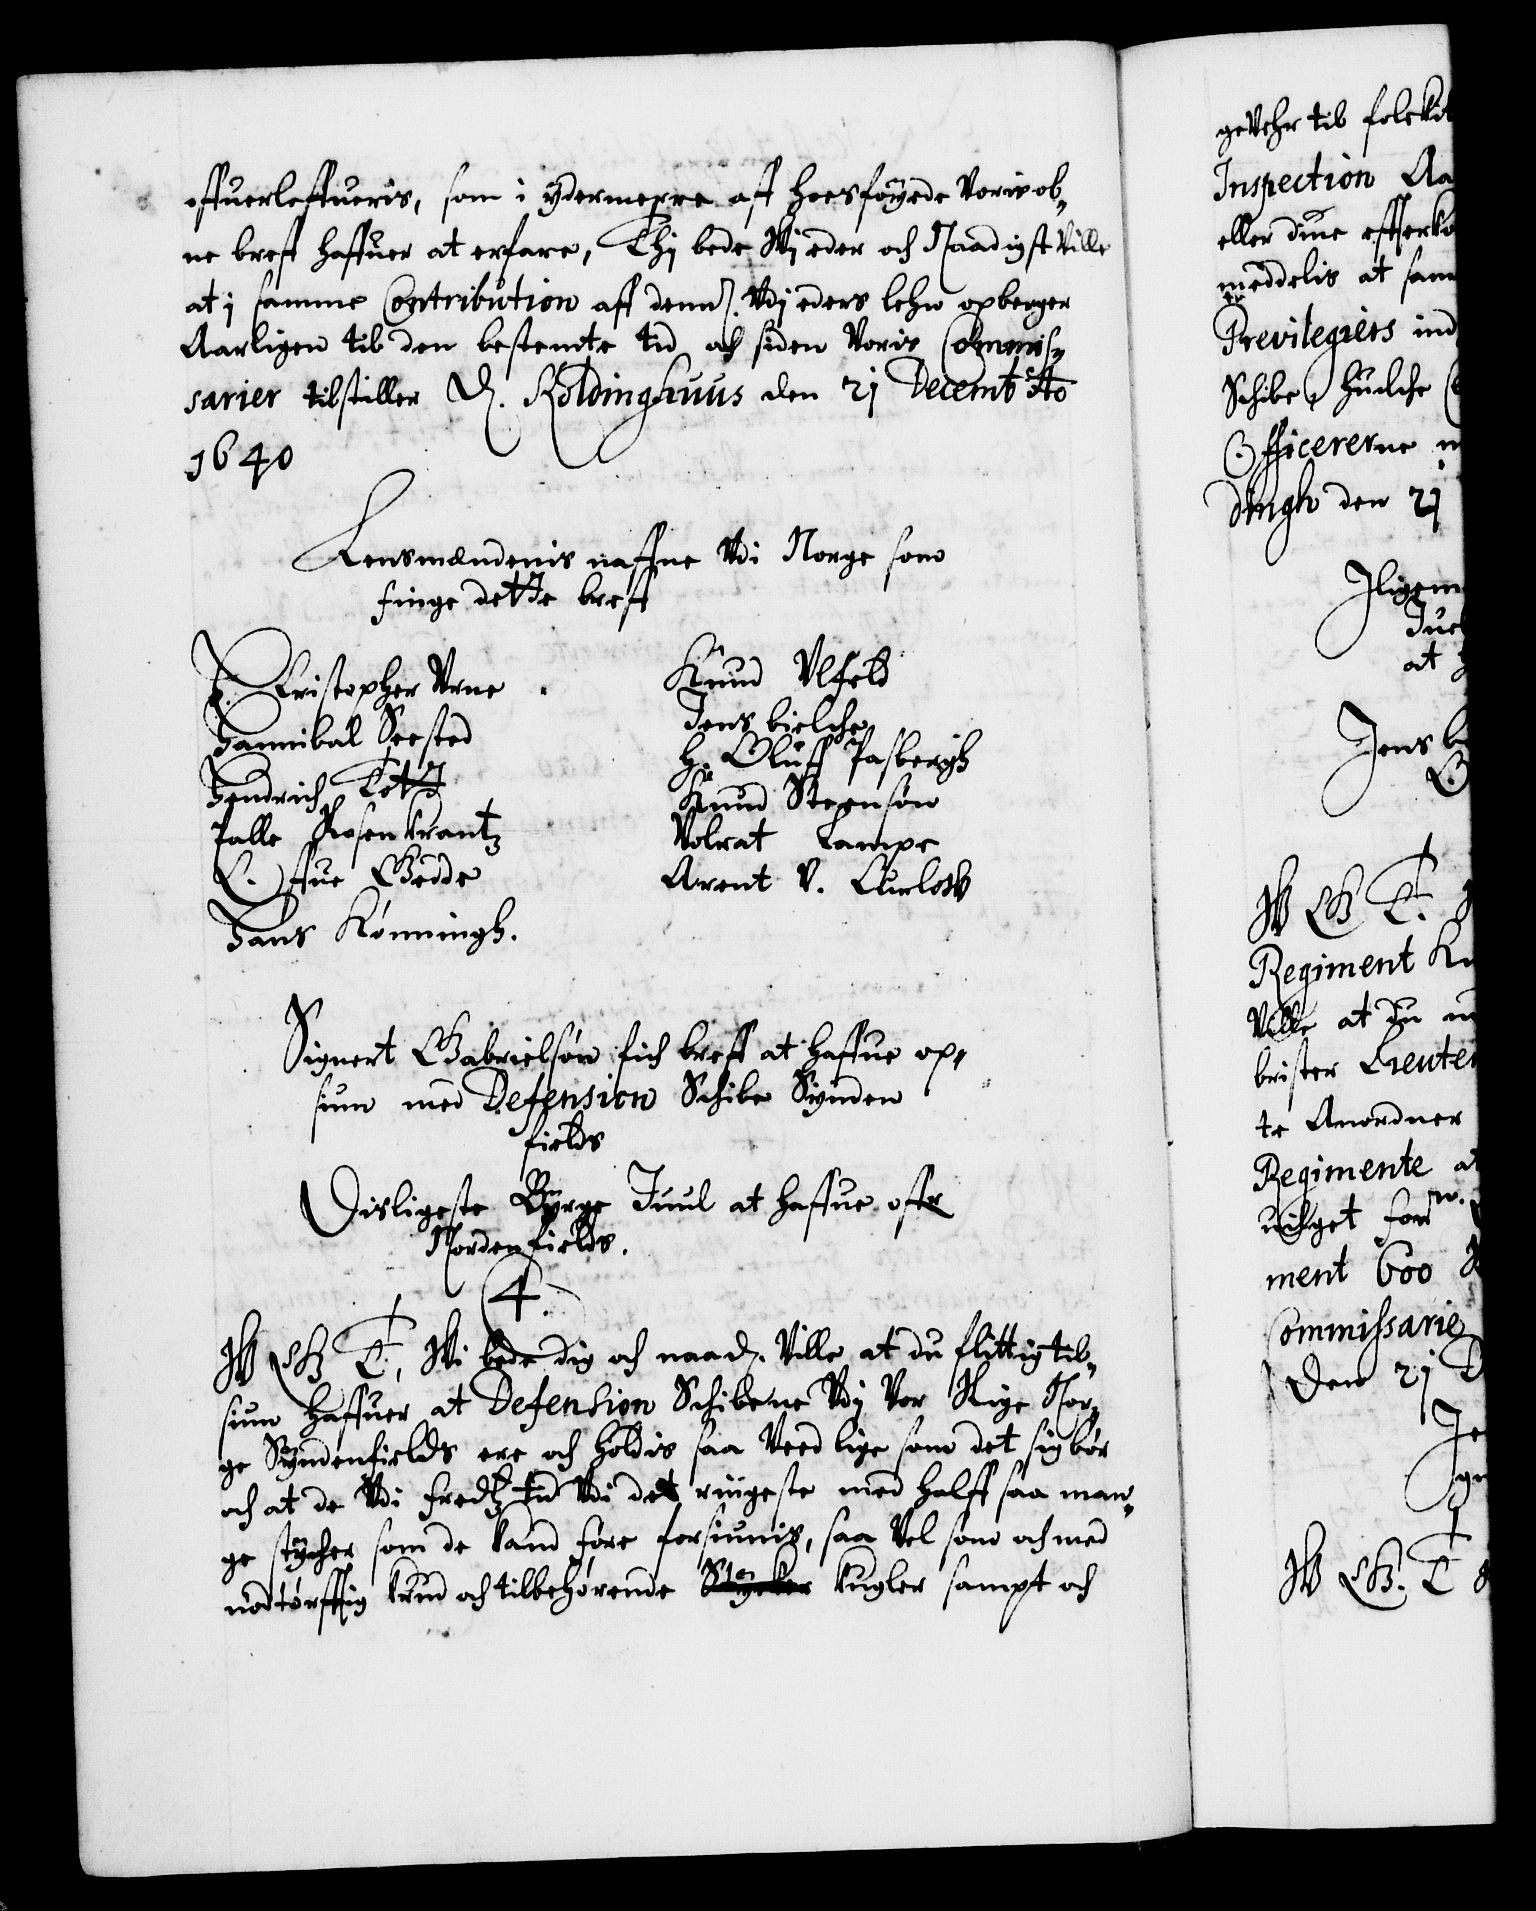 offuerleffueris, som i ydermerre aff hoesføyede Voris ob,
ne breff haffuer at erfare, Thj bede Wj eder och Naadigst Ville
at j samme Contribution aff denn. Vdj eders lehn opberger
Aarligen til den bestemte tid och siden Voris Commis,
sarier tilstiller D. Koldinghuus den 21 Decemb: Ao
1640
Lensmændenis naffne Vdi Norge som
finge dette breff
H. Cristopher Vrne.
Hannibal Seested
Hendrich Tott
Palle Rosenkrantz
Offue Giedde
Hans Kønningh.
Knud Vlfeld
Jens bielche
H. Oluff Pasbergh
Knud Steensøn
Volrat Lampe
Arent V. Curloth
Signert Gabrielsøn fich breff at haffue op,
siun med Defension Schibe Synden
fields
Disligeste Børge Juul at haffue offr
Nordenfields.
4.
W G T, Wi bede dig och naad. Ville at du flittig til,
siun haffuer at Defension Schibene Vdj Vor Rige Nor,
ge Syndenfields ere och holdis saa Veed lige som det sig bør
och at de Vdi fredtz tid Vdi det ringeste med halff saa man,
ge stycher som de kand føre forsiunis, saa Vel som och med
nødtørfftig krud och tilbehørende Stycker kugler sampt och
gevehr til folckit
Inspection
eller dine effterko
meddelis at sam
er
Previlegiers ind
Schibe, huilche
Officererne
dingh den 21
Jligem
Juel
at
Jens
W G T.
Regiment
Ville at du
brister Lieuten
te Anordner
Regimente
uilget for
ment 600
Commissarie
Den 21 D
W G. T